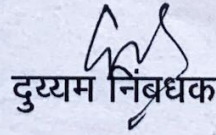 दुय्यम निंबधक